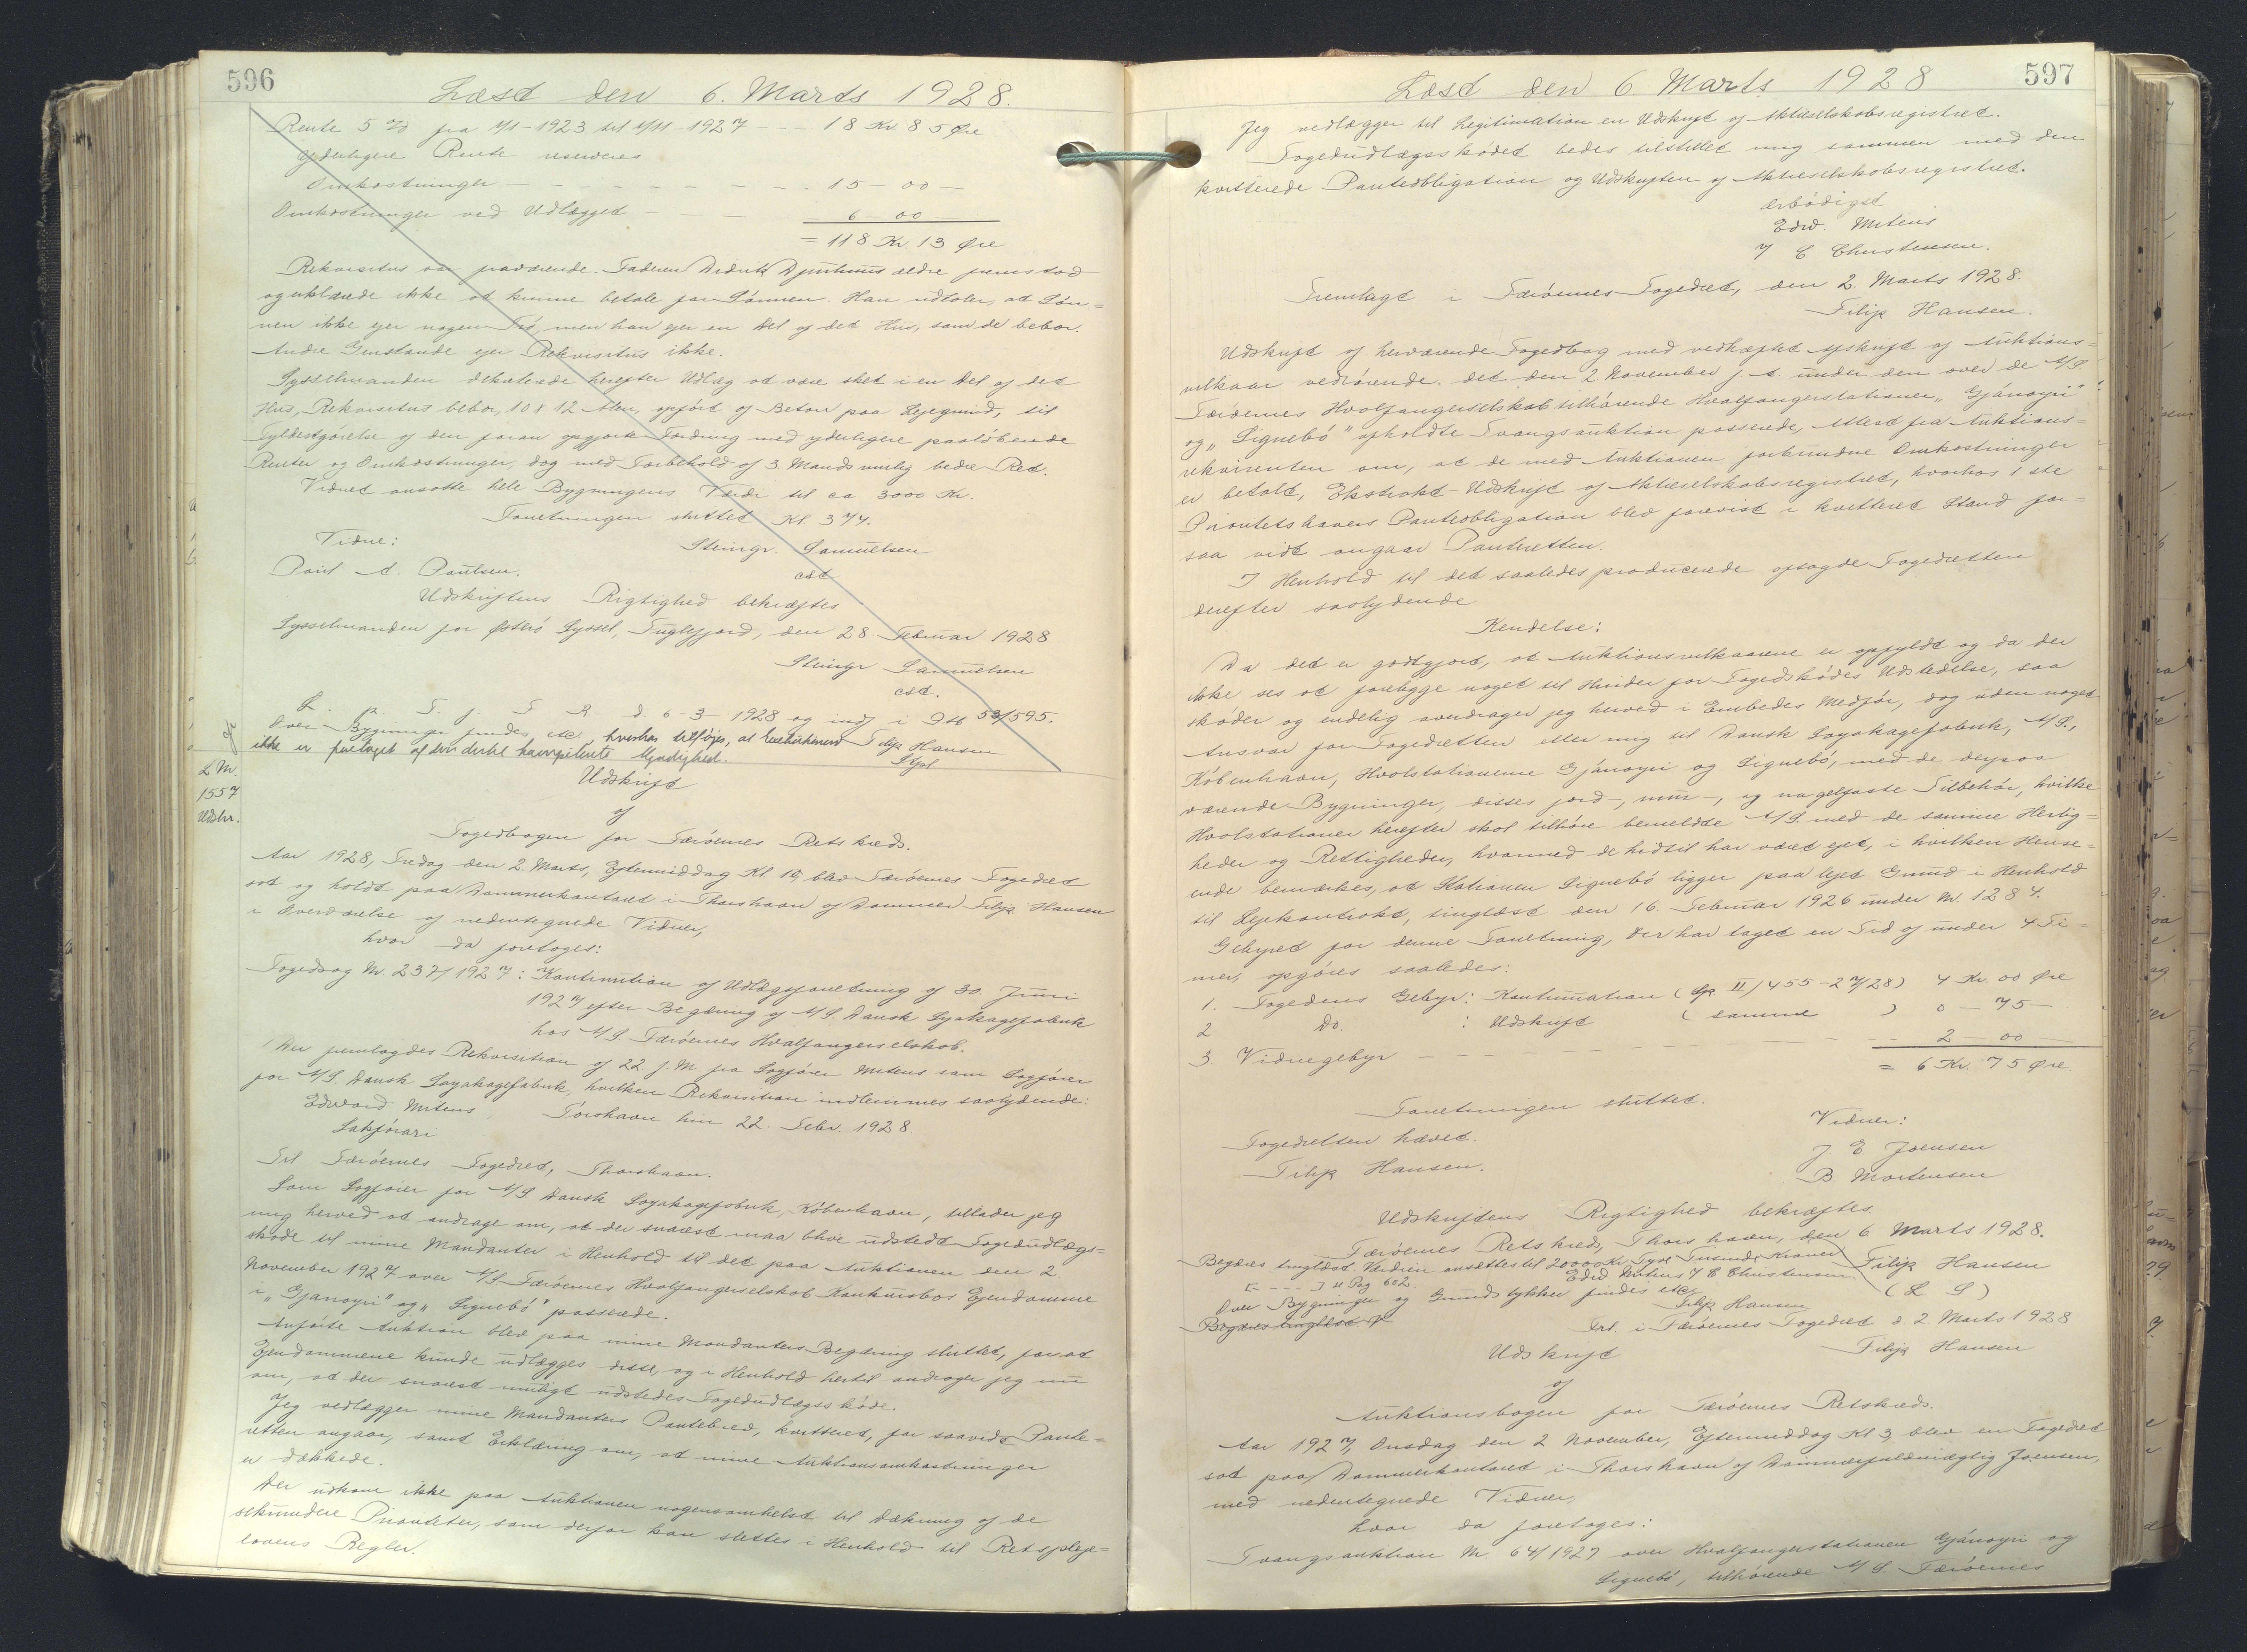 596
Læst den 6. Marts 1928.
Rente 5 % fra 1/1-1923 til 1/11-1927 - - - 18 Kr 85 Øre
Yderligere Rente reserveres
Omkostninger - - - - - - - - - 15 - 00 -
Omkostninger ved Udlægget - - - 6 - 00 -
= 118 Kr. 13 Øre
Rekvisitus var fraværende. Faderen Didrik Djurhuus ældre fremstod
og erklærede ikke at kunne betale for Sønnen. Han udtaler, at Søn=
nen ikke ejer nogen Jord, men han ejer en Del af det Hus, som de bebor.
Andre Genstande ejer Rekvisitus ikke.
Sysselmanden dekreterede herefter Udlæg at være sket i en Del af det
Hus, Rekvisitus bebor, 10 x 12 Alen, opført af Beton paa Lejegrund, til
Fyldestgørelse af den foran opgjorte Fordring med yderligere paaløbende
Renter og Omkostninger, dog med Forbehold af 3. Mands mulig bedre Ret.
Vidnet ansatte hele Bygningens Værdi til ca 3000 Kr.
Forretningen sluttet Kl 3 3/4.
Vidne: Steingr. Samuelsen
Poul A. Poulsen. cst
Udskriftens Rigtighed bekræftes
Sysselmanden for Østerø Syssel, Fuglefjord, den 28. Februar 1928
Steingr Samuelsen
cst.
L. p T. f. F R. d. 6-3-1928 og indf i Ptb 53/595.
Over Bygninger findes etc, hvorhos tilføjes, at
ikke er foretaget af den dertil kompetente Myndighed. Filip Hansen
Stpl
L. Nr.
1557
Udskr.
Udskrift
af
Fogedbogen for Færøernes Retskreds.
Aar 1928, Fredag den 2. Marts, Eftermiddag Kl 15, blev Færøernes Fogedret
sat og holdt paa Dommerkontoret i Thorshavn af Dommer Filip Hansen
i Overværelse af nedentegnede Vidner,
hvor da foretoges:
Fogedsag Nr. 237/1927: Kontinuation af Udlægsforretning af 30. Juni
1927 efter Begæring af A/S. Dansk Soyakagefabrik
hos A/S. Færøernes Hvalfangerselskab.
Der fremlagdes Rekvisition af 22. f. M fra Sagfører Mitens som Sagfører
for A/S. Dansk Soyakagefabrik, hvilken Rekvisition indlemmes saalydende:
Edward Mitens Tórshavn hin 22. Febr. 1928.
Sakførari
Til Færøernes Fogedret, Thorshavn.
Som Sagfører for A/S. Dansk Soyakagefabrik, København, tillader jeg
mig herved at andrage om, at der snarest maa blive udstedt Fogedudlægs=
skøde til mine Mandanter i Henhold til det paa Auktionen den 2
November 1927 over A/S Færøernes Hvalfangerselskab Konkursbos Ejendomme
i "Gjánoyri" og "Signebø" passerede.
Anførte Auktion blev paa mine Mandanters Begæring sluttet, for at
Ejendommene kunde udlægges disse, og i Henhold hertil andrager jeg nu
om, at der snarest muligt udstedes Fogedudlægsskøde.
Jeg vedlægger mine Mandanters Pantebrev, kvitteret, for saavidt Pante=
retten angaar, samt Erklæring om, at mine Auktionsomkostninger
er dækkede.
Der udkom ikke paa Auktionen nogensomhelst til Dækning af de
sekundære Prioriteter, som derfor kan slettes i Henhold til Retspleje=
lovens Regler.
597
Læst den 6 Marts 1928
Jeg vedlægger til Legitimation en Udskrift af Aktieselskabsregistret.
Fogedudlægsskødet bedes tilstillet mig sammen med den
kvitterede Panteobligation og Udskriften af Aktieselskabsregistret.
ærbødigst
Edw. Mitens
/ C Christensen.
Fremlagt i Færøernes Fogedret, den 2. Marts 1928.
Filip Hansen.
Udskrift af herværende Fogedbog med vedhæftet Afskrift af Auktions=
vilkaar vedrørende. det den 2 November f. A. under den over de A/S.
Færøernes Hvalfangerselskab tilhørende Hvalfangerstationer "Gjánoyri"
og "Signebø" afholdte Tvangsauktion passerede, Attest fra Auktions=
rekvirenten om, at de med Auktionen forbundne Omkostninger
er betalt, Ekstrakt-Udskrift af Aktieselskabsregistret, hvorhos 1 ste
Prioritetshavers Panteobligation blev forevist i kvitteret Stand for=
saa vidt angaar Panteretten.
I Henhold til det saaledes producerede afsagde Fogedretten
derefter saalydende
Kendelse:
Da det er godtgjort, at Auktionsvilkaarene er opfyldt og da der
ikke ses at foreligge noget til Hinder for Fogedskødes Udstedelse, saa
skøder og endelig overdrager jeg herved i Embeds Medfør, dog uden noget
Ansvar for Fogedretten eller mig til Dansk Soyakagefabrik, A/S.,
København, Hvalstationerne Gjánoyri og Signebø, med de derpaa
værende Bygninger, disses jord-, mur-, og nagelfaste Tilbehør, hvilke
Hvalstationer herefter skal tilhøre bemeldte A/S. med de samme Herlig=
heder og Rettigheder, hvormed de hidtil har været ejet, i hvilken Hense=
ende bemærkes, at Stationen Signebø ligger paa lejet Grund i Henhold
til Lejekontrakt, tinglæst den 16. Februar 1926 under Nr. 1284.
Gebyret for denne Forretning, der har taget en Tid af under 4 Ti=
mer, opgøres saaledes:
1. Fogedens Gebyr: Kontinuation (Gp II/455-2/3/28) 4 Kr. 00 Øre
2 Do. : Udskrift ( samme ) 0 - 75 -
3. Vidnegebyr - - - - - - - 2 - 00 -
= 6 Kr. 75 Øre.
Forretningen sluttet.
Fogedretten hævet. Vidner:
Filip Hansen. J E Joensen
B. Mortensen
Udskriftens Rigtighed bekræftes.
Færøernes Retskreds, Thorshavn, den 6 Marts 1928.
Begæres tinglæst. Værdien ansættes til 20000 Kr Tyve Tusinde Kroner Filip Hansen
Edw Mitens / C Christensen (L S)
[- - - ] u Pag 602
Over Bygninger og Grundstykker findes etc
Filip Hansen
Begæres tinglæst
Frl. i Færøernes Fogedret d. 2 Marts 1928
Filip Hansen
Udskrift
af
Auktionsbogen for Færøernes Retskreds.
Aar 1927, Onsdag den 2 November, Eftermiddag Kl 3, blev en Fogedret
sat paa Dommerkontoret i Thorshavn af Dommerfuldmægtig Joensen,
med nedentegnede Vidner,
hvor da foretoges:
Tvangsauktion Nr. 64/1927 over Hvalfangerstationen Gjánoyri og
Signebø, tilhørende A/S. Færøernes